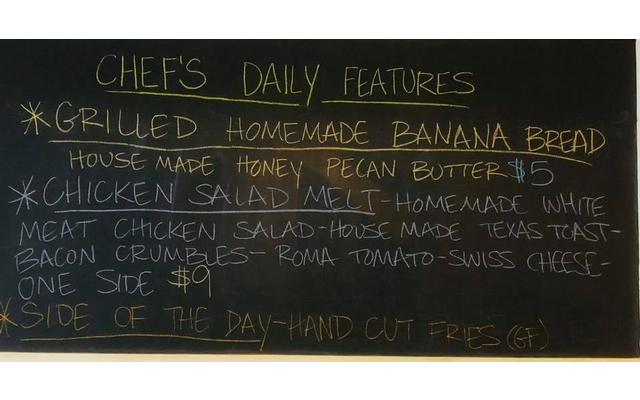 CHEF'S DAILY FEATURES
*GRILLED HOMEMADE BANANA BREAD
HOUSE MADE HONEY PECAN BUTTER $5
*CHICKEN SALAD MELT-HOMEMADE WHITE
MEAT CHICKEN SALAD-HOUSE MADE TEXAS TOAST-
BACON CRUMBLES-ROMA TOMATO-SWISS CHEESE-
ONE SIDE $9
*SIDE OF THE DAY-HAND CUT FRIES (GF)